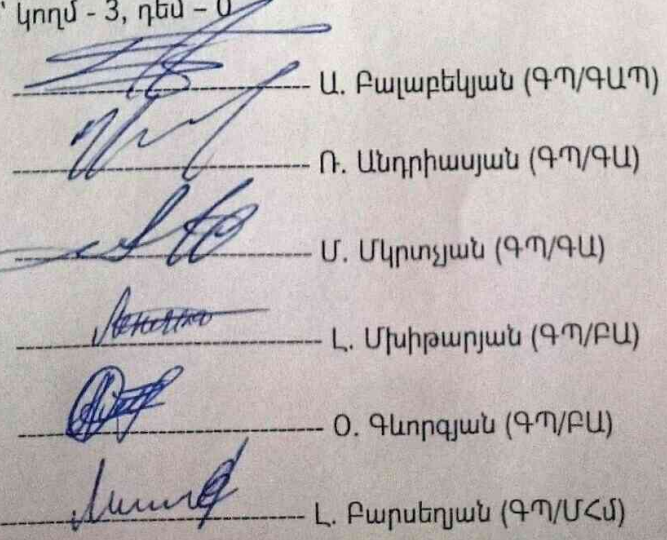 ՝ կողմ - 3, դեմ – 0
Ա. Բալաբեկյան (ԳՊ/ԳԱՊ)
Ռ. Անդրիասյան (ԳՊ/ԳԱ)
Մ. Մկրտչյան (ԳՊ/ԳԱ)
Լ. Մխիթարյան (ԳՊ/ԲԱ)
Օ. Գևորգյան (ԳՊ/ԲԱ)
Լ. Բարսեղյան (ԳՊ/ՄՀմ)